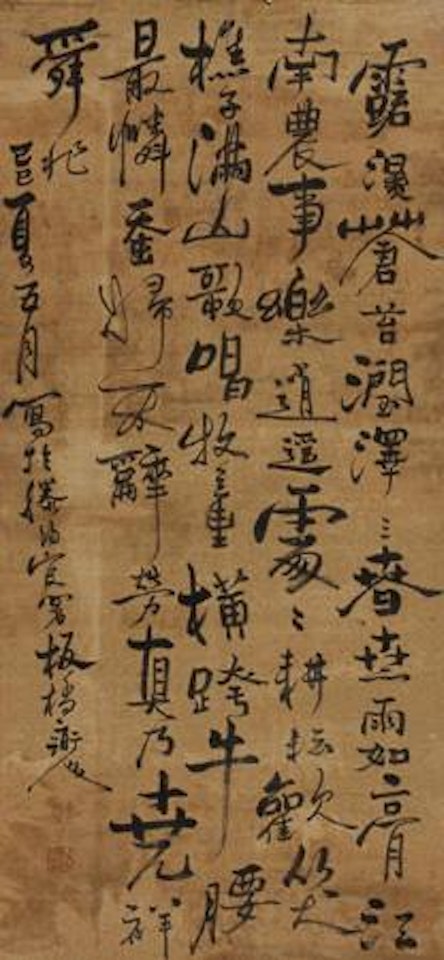 露濕蒼苔潤澤々春雨如膏江
南農事樂逍遥處々耕耘歡笑
樵子滿山歌唱牧童橫跨牛腰
最憐蚕婦不辭勞真乃堯祥
舜兆
己巳夏五月寫於官署板橋鄭燮